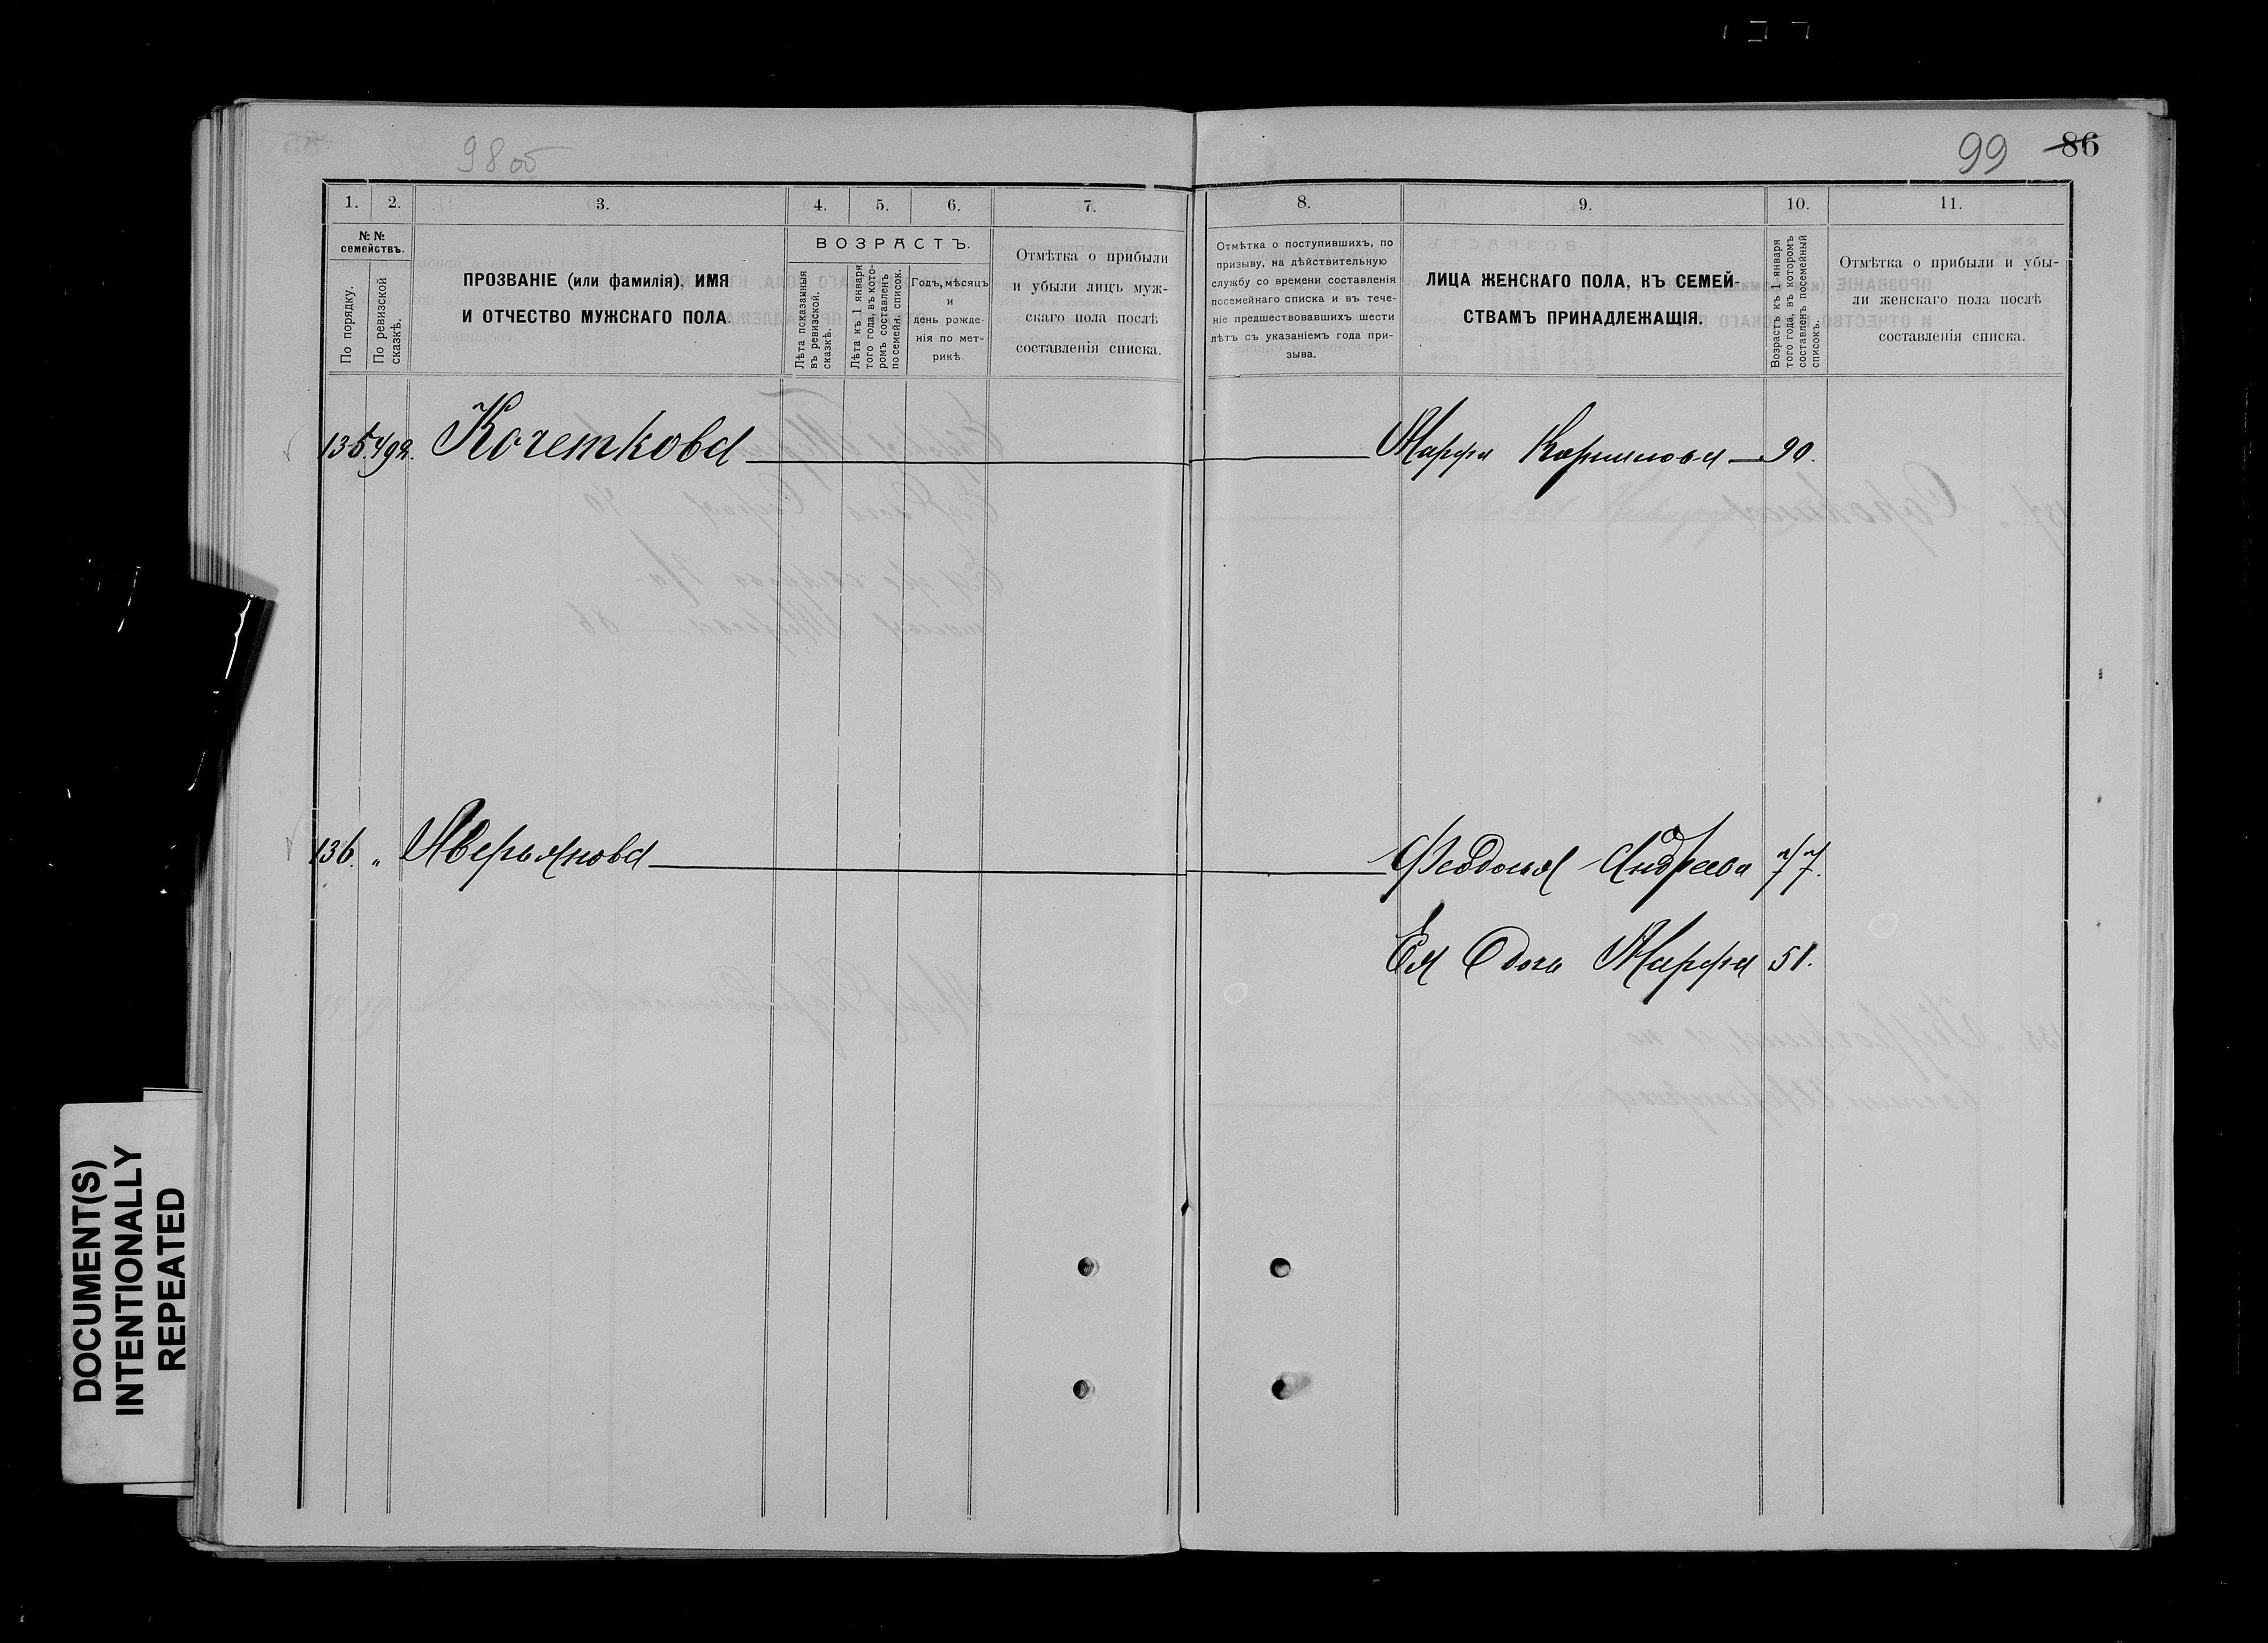 98 об
99 86
1. 2. 3. 4. 5. 6. 7.
№ №
семействъ.
По порядку.
По ревизской
сказкѣ.
ПРОЗВАНІЕ (или фамилія), ИМЯ
И ОТЧЕСТВО МУЖСКАГО ПОЛА.
ВОЗРАСТЪ.
Лѣта показанныя
въ ревизской.
сказкѣ.
Лѣта къ 1 января
того года, въ кото-
ромъ составленъ
посемейн. список.
Годъ, мѣсяцъ
и
день рожде-
нія по мет-
рикѣ.
Отмѣтка о прибыли
и убыли лицъ муж-
скаго пола послѣ
составленія списка.
8. 9. 10. 11.
Отмѣтка о поступившихъ, по
призыву, на дѣйствительную
службу со времени составленія
посемейнаго списка и въ тече-
ніе предшествовавшихъ шести
лѣтъ съ указаніемъ года при-
зыва.
ЛИЦА ЖЕНСКАГО ПОЛА, КЪ СЕМЕЙ-
СТВАМЪ ПРИНАДЛЕЖАЩІЯ.
Возрастъ къ 1 января
того года, въ которомъ
составленъ посемейный
списокъ.
Отмѣтка о прибыли и убы-
ли женскаго пола послѣ
составленія списка.
135. 492. Кочеткова Марфа 90.
136. „ Аверьянова Феодосья Андреева 77.
Ея дочь Марфа 51.
DOCUMENT(S)
INTENTIONALLY
REPEATED